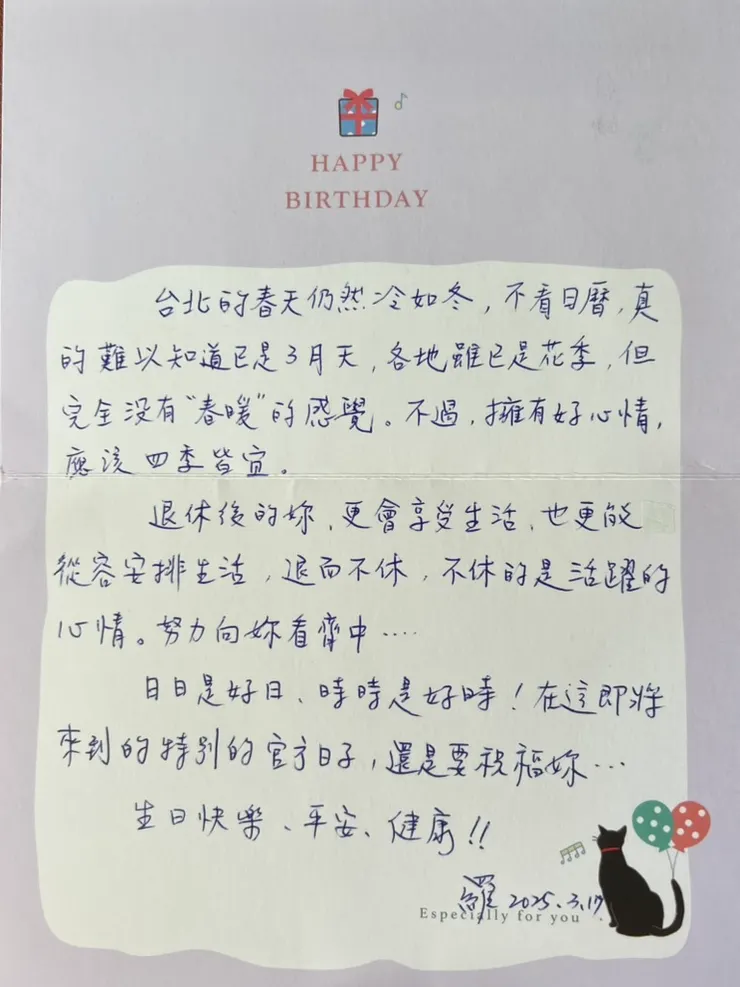 HAPPY
BIRTHDAY
台北的春天仍然冷如冬，不看日曆，真
的難以知道已是3月天，各地雖已是花季，但
完全沒有"春暖"的感覺。不過，擁有好心情，
應該四季皆宜。
退休後的妳，更會享受生活，也更能
從容安排生活，退而不休，不休的是活躍的
心情。努力向妳看齊中····
日日是好日、時時是好時！在這即將
來到的特別的官方日子，還是要祝福妳···
生日快樂、平安、健康!!
羅 2025.3.17.
Especially for you